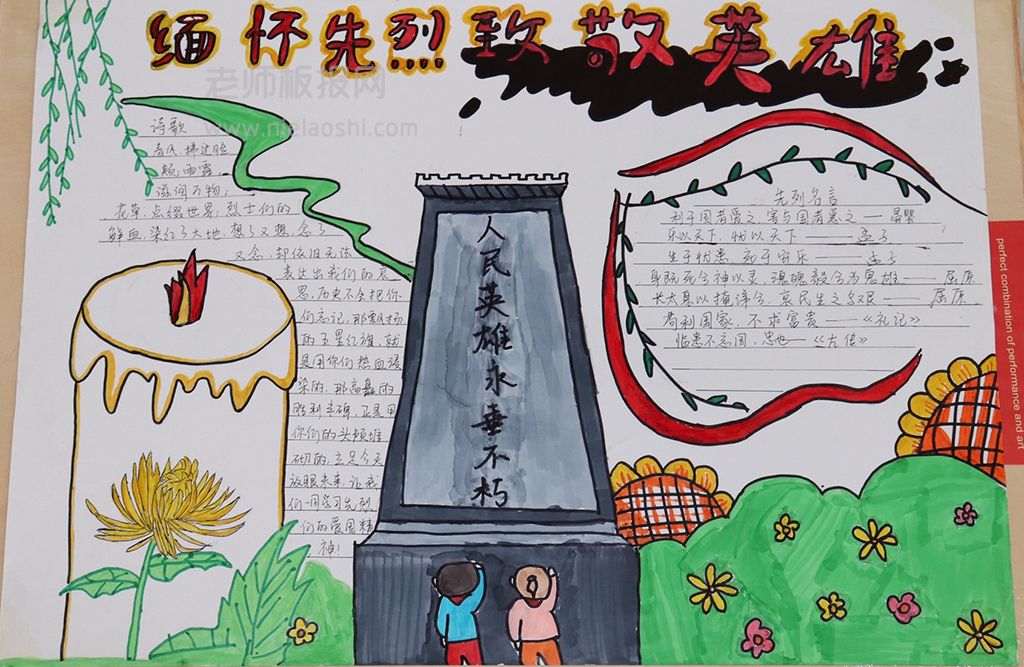 缅怀先烈致敬英雄
老师板报网
www.nielaoshi.com
诗歌
春风,拂过脸
颊,雨露,
滋润万物,
花草,点缀世界,烈士们的
鲜血,染红了大地,想了又想,念了
又念,却依旧无法
表达出我们的哀
思,历史不会把你
们忘记,那飘扬
的五星红旗,就
是用你们热血浸
染的,那高矗的
胜利丰碑,正是用
你们的头颅堆
砌的,立足今天
放眼未来,让我
们一同学习先烈
们的爱国精
神!
人民英雄永垂不朽
先烈名言
利于国者爱之,害与国者恶之——晏婴
乐以天下,忧以天下——孟子
生于忧患,死于安乐——孟子
身既死兮神以灵,魂魄毅兮为鬼雄——屈原
长太息以掩涕兮,哀民生之多艰——屈原
苟利国家,不求富贵——《礼记》
临患不忘国,忠也—《左传》
perfect combination of performance and art